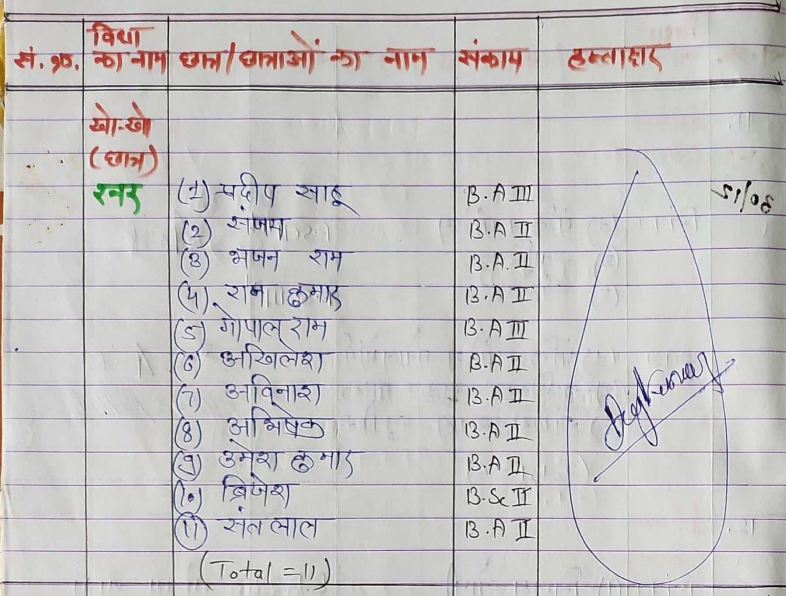 सं. क्र. विधा का नाम छात्र/छात्राओं का नाम संकाय हस्ताक्षर
खो-खो
(छात्र)
रनर (1) प्रदीप साहू B.A III
(2) संजय B.A II
(3) भजन राम B.A. II
(4) राम कुमार B.A II
(5) गोपाल राम B.A III
(6) अखिलेश B.A II
(7) अविनाश B.A II
(8) अभिषेक B.A II
(9) उमेश कुमार B.A II
(10) ब्रिजेश B.Sc II
(11) संत लाल B.A II
(Total = 11)